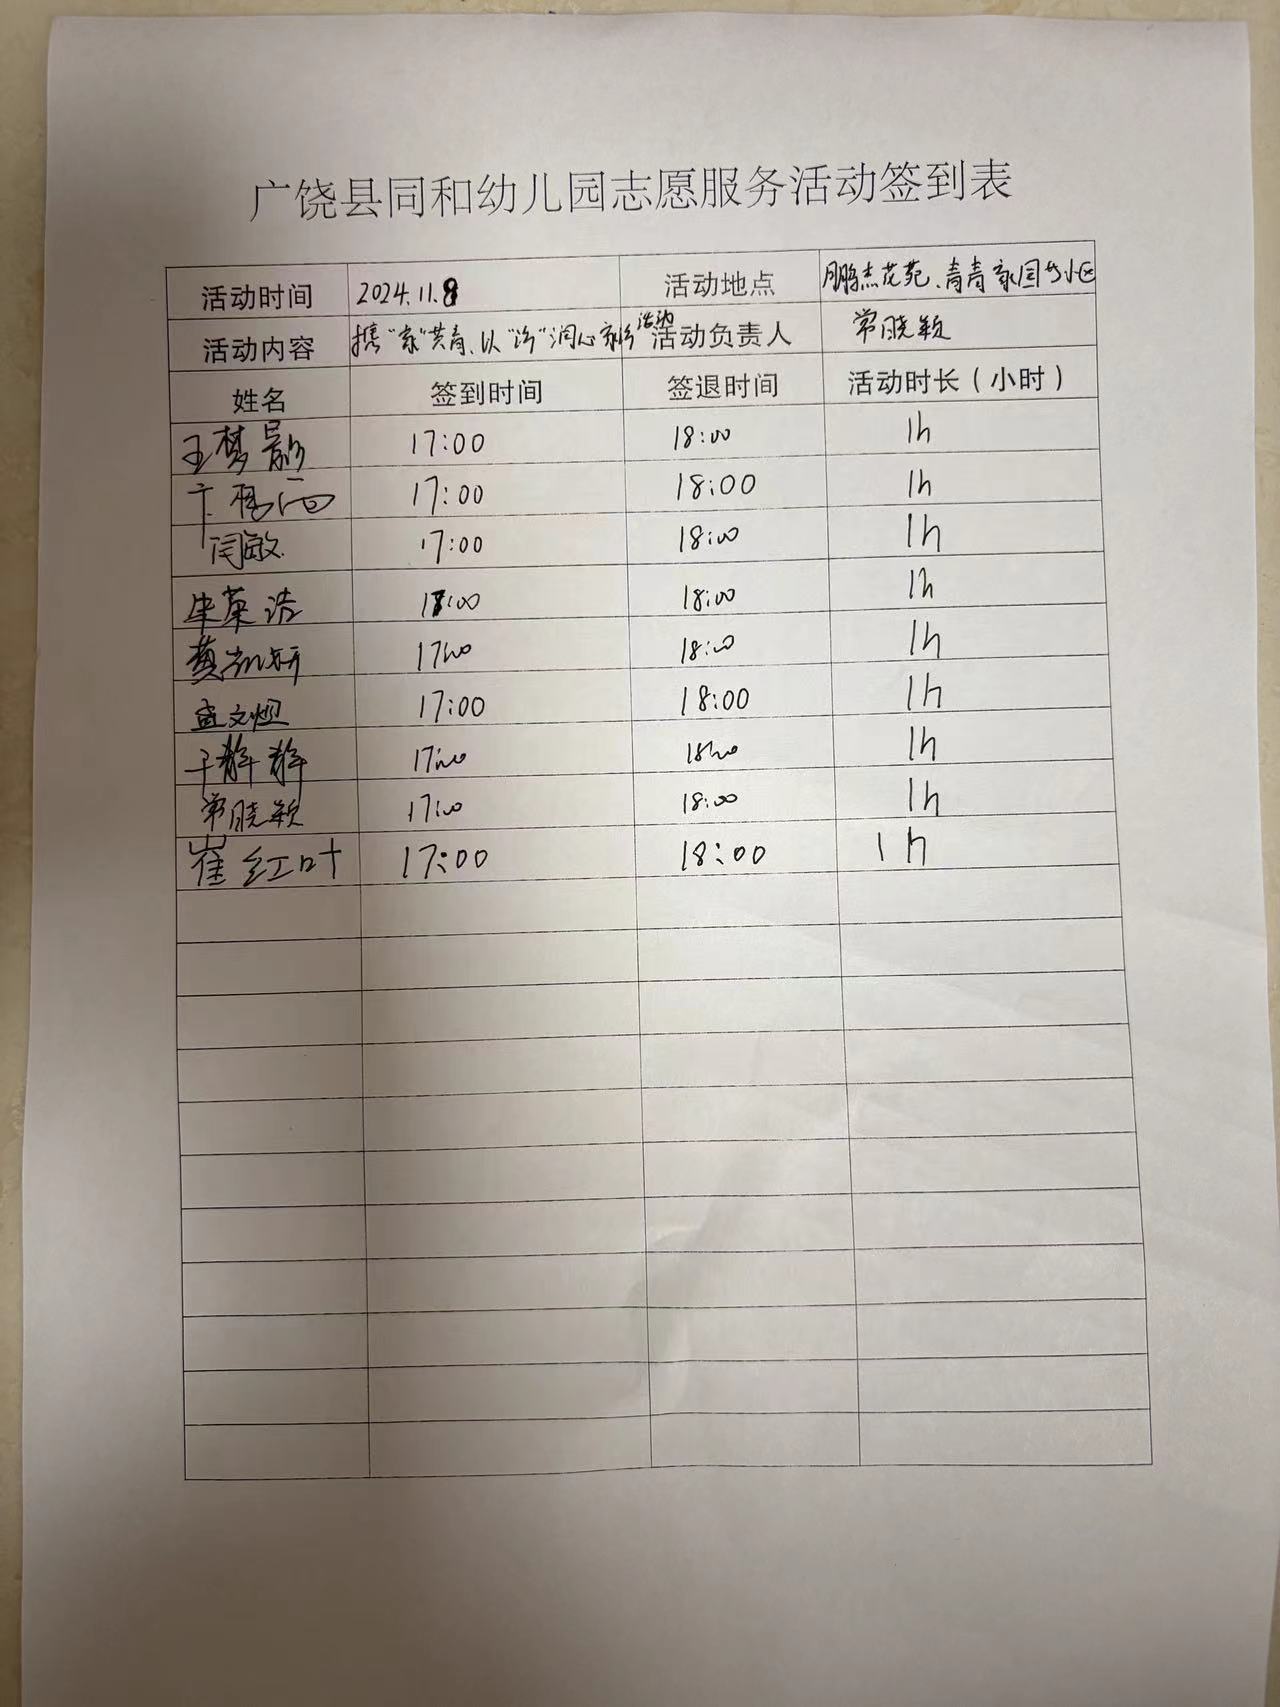 广饶县同和幼儿园志愿服务活动签到表
活动时间 2024.11.8 活动地点 鹏杰花苑、青青家园等小区
活动内容 携"家"共育、以"沙"润心家访活动 活动负责人 常晓颖
姓名 签到时间 签退时间 活动时长（小时）
王梦影 17:00 18:00 1h
17:00 18:00 1h
闫敏 17:00 18:00 1h
17:00 18:00 1h
17:00 18:00 1h
盛文烜 17:00 18:00 1h
于静静 17:00 18:00 1h
常晓颖 17:00 18:00 1h
崔红叶 17:00 18:00 1h